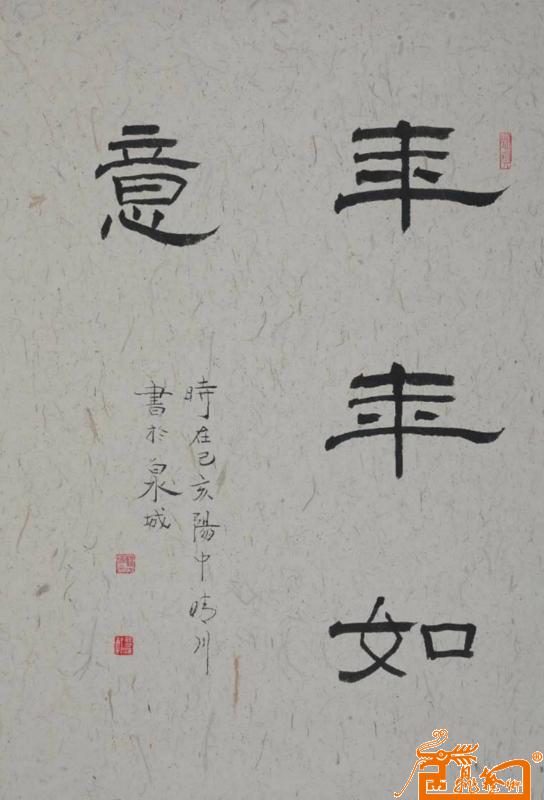 年年如
意
時在己亥陽中晴川
書於泉城